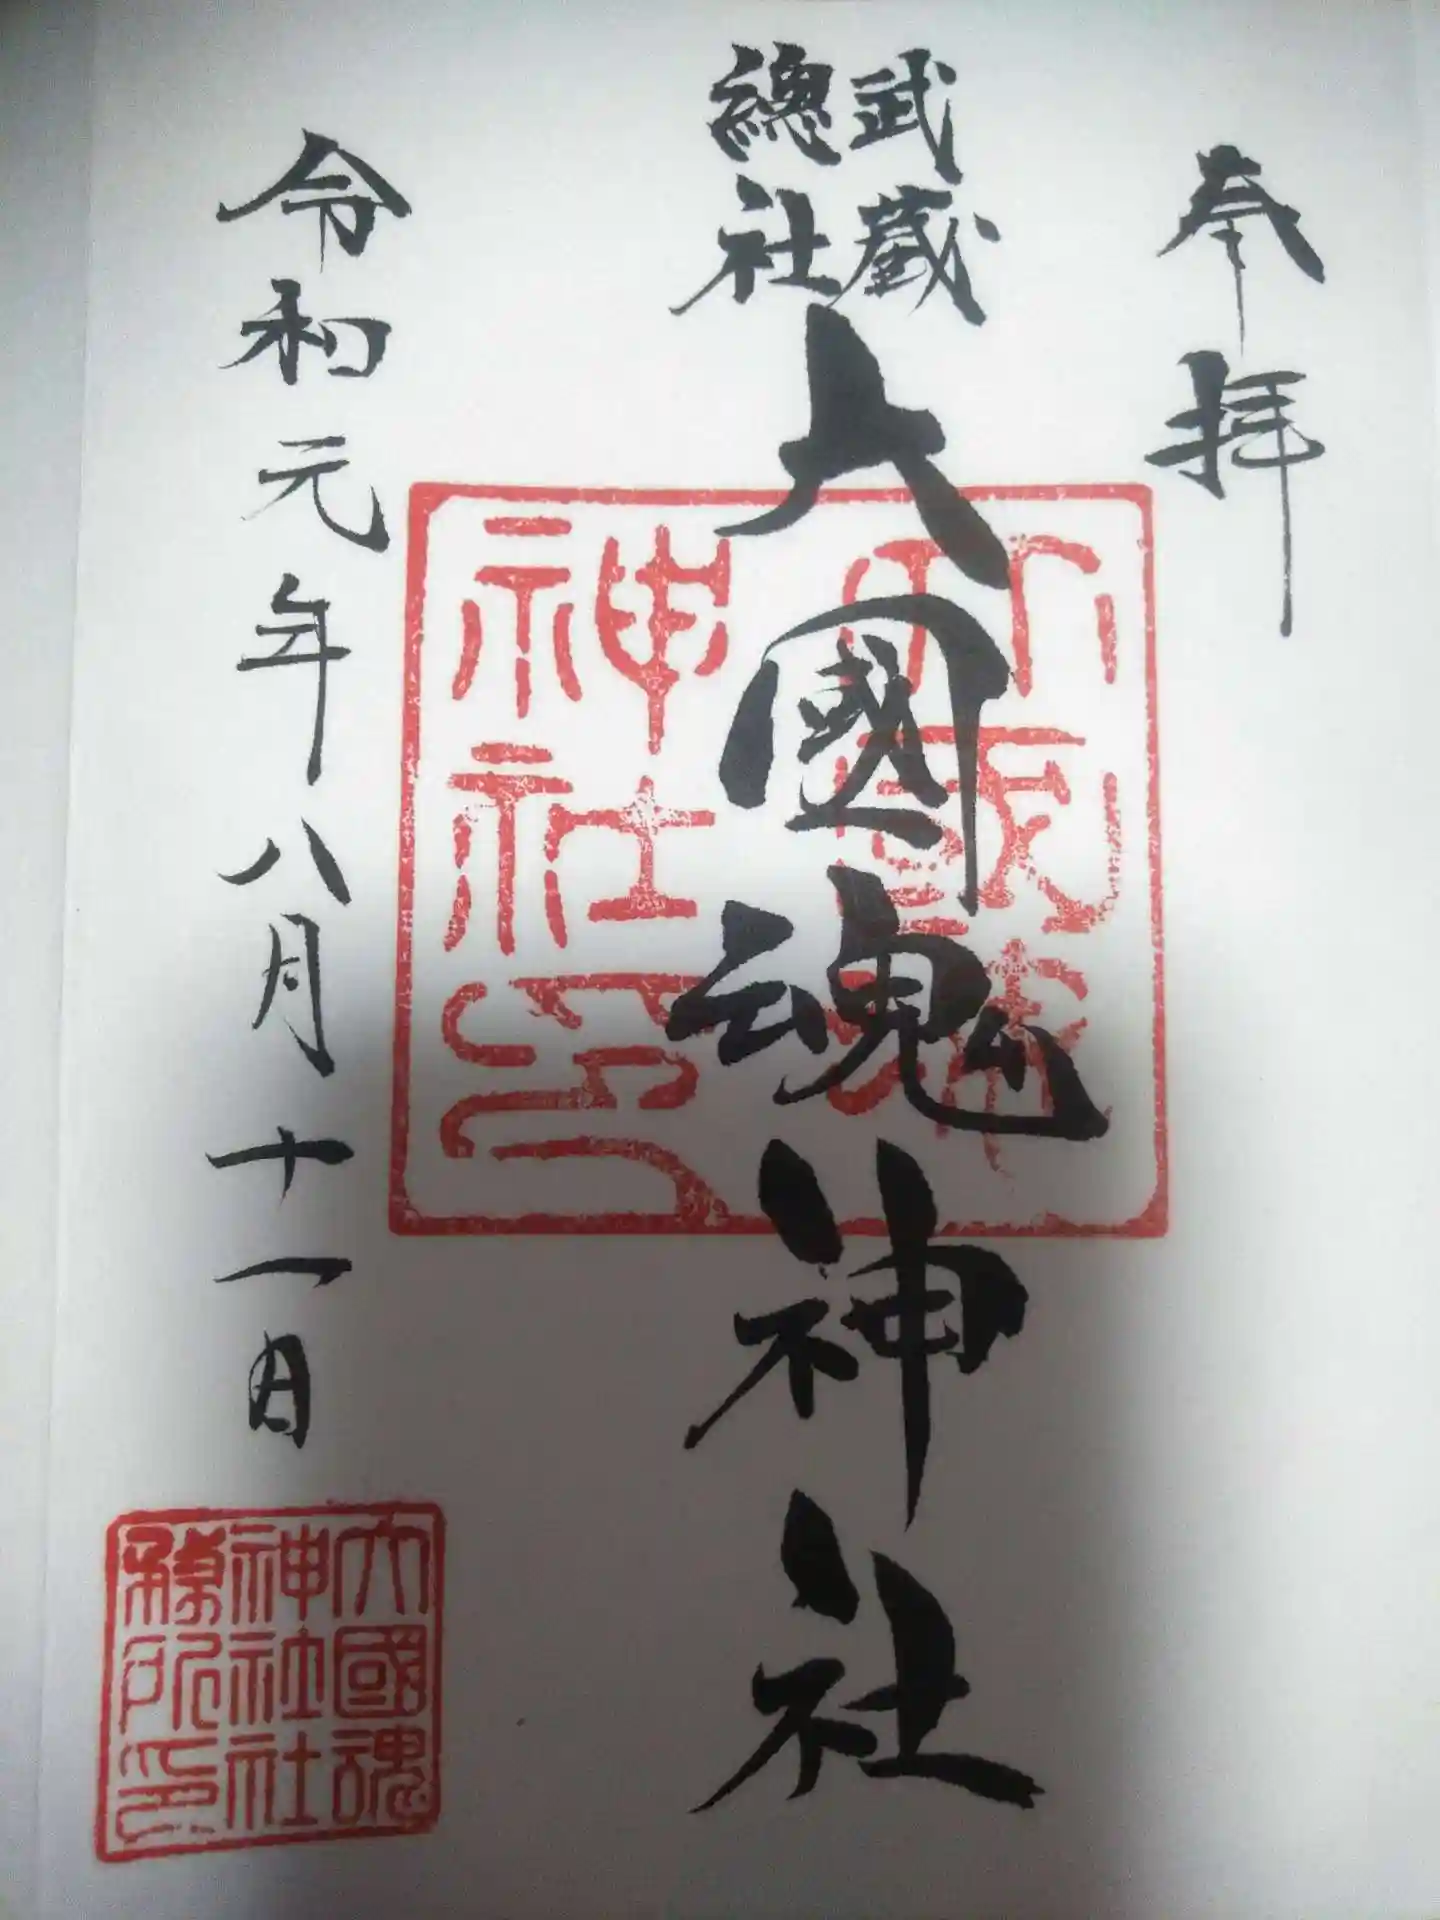 奉拝
武蔵
總社
大國魂神社
令和元年八月十一日
大國魂
神社社
務所印